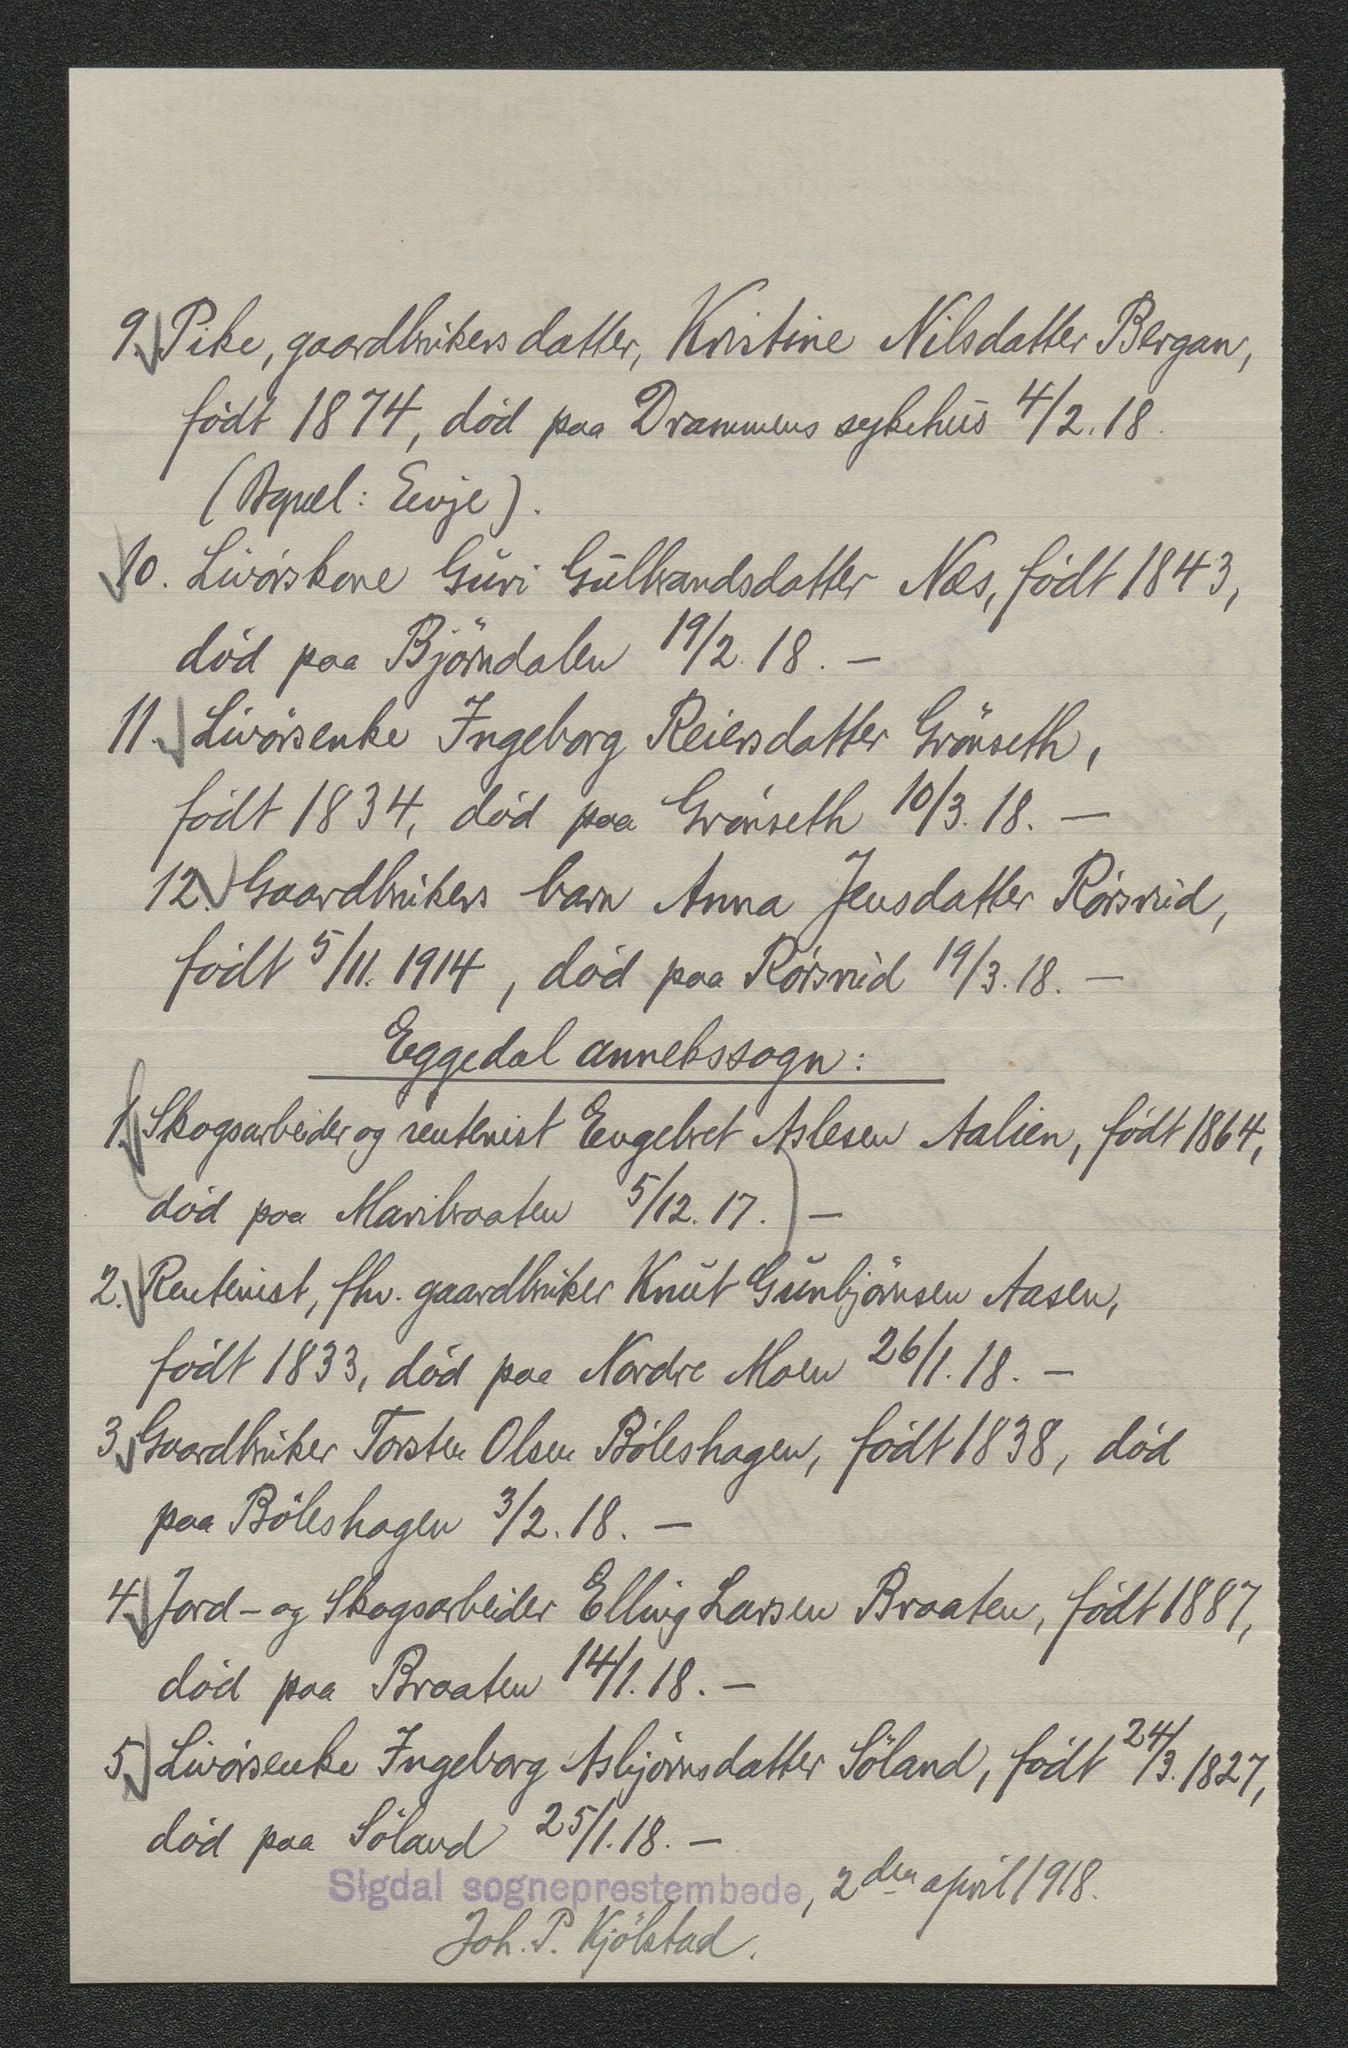 9. Pike, gaardbrukers datter, Kristine Nilsdatter Bergan,
født 1874, død paa Drammens sykehus 4/2.18.
(Bopæl: Eevje).
10. Livörskone Guri Gulbrandsdatter Næs, født 1843,
död paa Björndalen 19/2.18. –
11. Livörsenke Ingeborg Reiersdatter Grönseth,
født 1834, død paa Grönseth 10/3.18. –
12. Gaardbrukers barn Anna Jensdatter Rörsrud,
født 5/11.1914, død paa Rörsrud 19/3.18. –
Eggedal annekssogn:
1. Skogsarbeider og rentenist Engebret Aslesen Aalien, født 1864,
død paa Maribraaten 5/12.17.) –
2. Rentenist, fhv. gaardbruker Knut Gunbjörnsen Aasen,
født 1833, død paa Nordre Moen 26/1.18. –
3. Gaardbruker Torsten Olsen Böleshagen, født 1838, död
paa Böleshagen 3/2.18. –
4. Jord- og Skogsarbeider Elling Larsen Braaten, født 1887,
død paa Braaten 14/1.18. –
5. Livörsenke Ingeborg Asbjörnsdatter Söland, født 24/3.1827,
död paa Söland 25/1.18. –
Sigdal sogneprestembede, 2den april 1918.
Joh. P. Kjölstad.